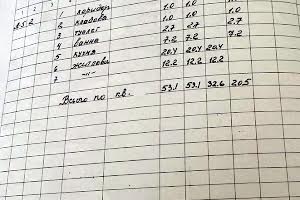 1 коридор 1.0 1.0 1.0
А-5.2 2 кладова 1.0 1.0 1.0
3 туалет 2.7 2.7 2.7
4 ванна 7.2 7.2 7.2
5 кухня 20.4 20.4 20.4
6 житлова 12.2 12.2 12.2
7 —"—
Всього по кв. 53.1 53.1 32.6 20.5